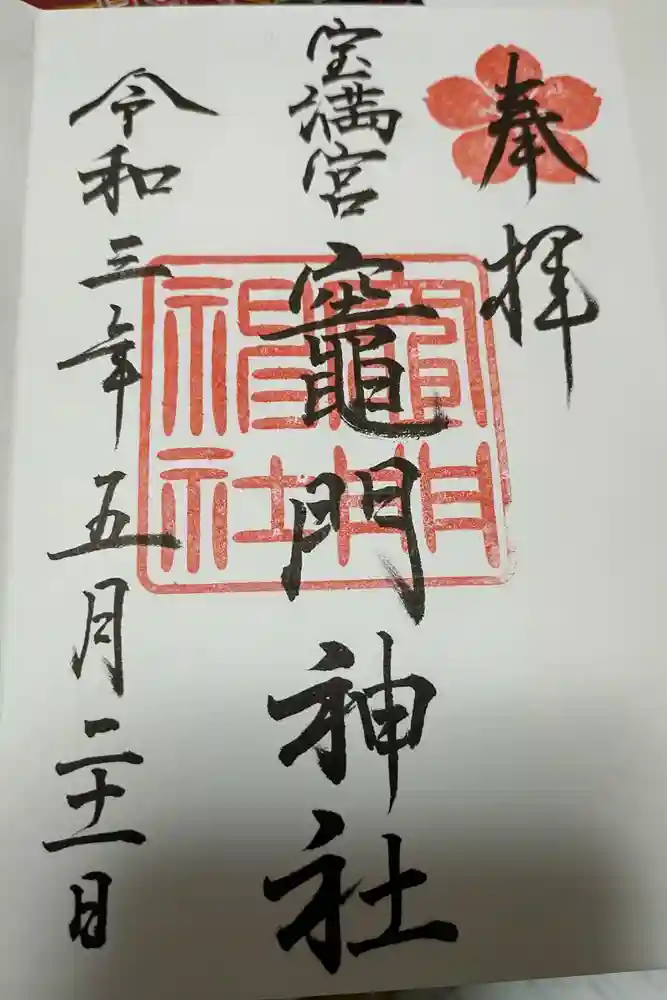 奉拝
宝満宮
竈門神社
竈門神社
令和三年五月二十一日